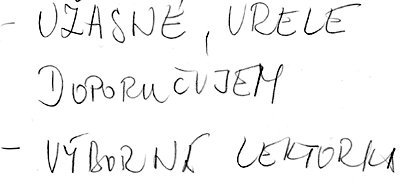 - UŽASNÉ, VRELE
DOPORUČUJEM
- VÝBORNÁ LEKTORKA